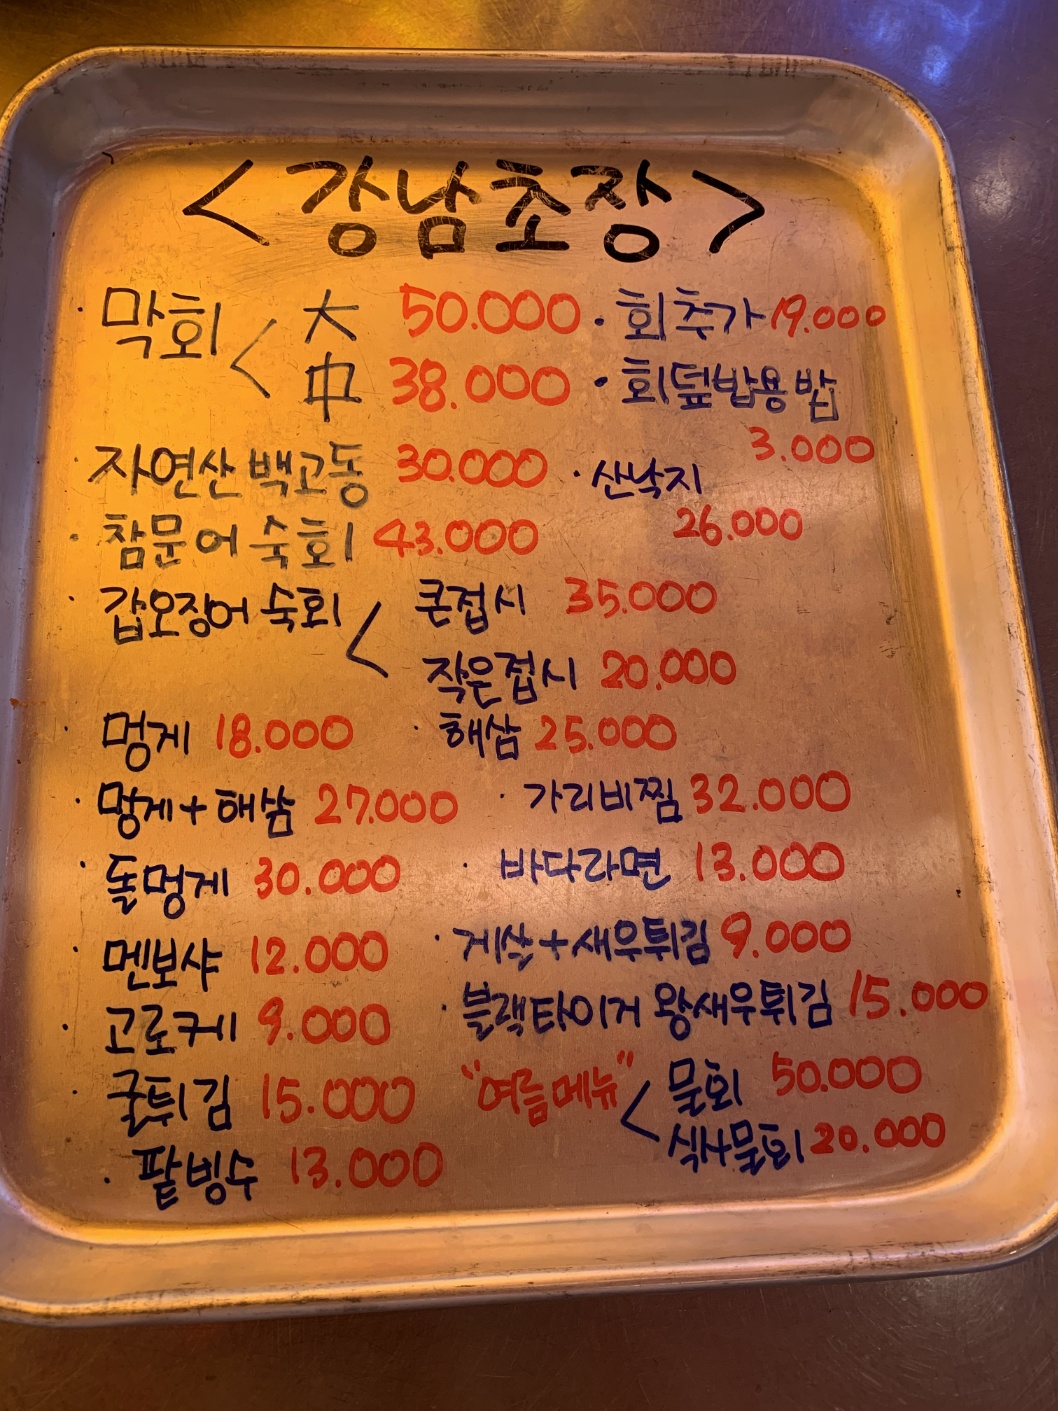 <강남초장>
· 막회 < 大 50.000 · 회추가 19.000
中 38.000 · 회덮밥용 밥
3.000
· 자연산 백고동 30.000 · 산낙지
26.000
· 참문어 숙회 43.000
· 갑오징어 숙회 < 큰접시 35.000
작은접시 20.000
· 멍게 18.000 · 해삼 25.000
· 멍게+해삼 27.000 · 가리비찜 32.000
· 돌멍게 30.000 · 바다라면 13.000
· 멘보샤 12.000 · 게살+새우튀김 9.000
· 고로케 9.000 · 블랙타이거 왕새우튀김 15.000
· 굴튀김 15.000 "여름메뉴" < 물회 50.000
식사물회 20.000
· 팥빙수 13.000